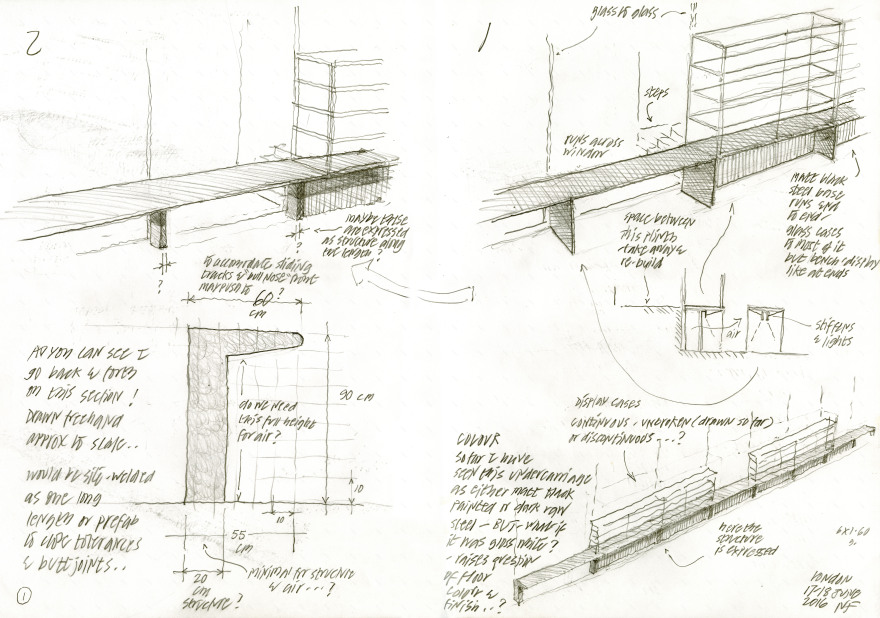 2
maybe these
are expressed
as structure along
the length?
?
?
to accomodate sliding
tracks & bullnose front
may push to
60?
cm
90 cm
do we need
this full height
for air?
10
10
55
cm
20
cm
structure?
minimal for structure
& air---?
As you can see I
go back & forth
on this section!
Drawn freehand
approx to scale..
would be site-welded
as one long
length or prefab
to close tolerances
& butt joints..
1
1
glass to glass
steps
runs across
window
space between
this plinth
take away &
re-build
matt black
steel base
runs end
to end
glass cases
to most of it
but bench-display
like at ends
air
stiffeners
& lights
DISPLAY CASES
continuous-unbroken (drawn so far)
or discontinuous---?
COLOUR
so far I have
seen this undercarriage
as either matt black
painted or dark raw
steel - BUT what if
it was gloss white?
- raises question
of floor
colour &
finish..?
here the
structure
is expressed
LONDON
17-18 JUNE
2016 NF